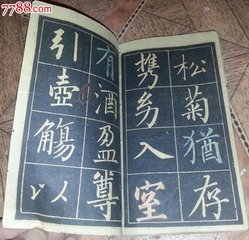 7788.com
松菊猶存
攜幼入室
有酒盈尊
引壺觴以